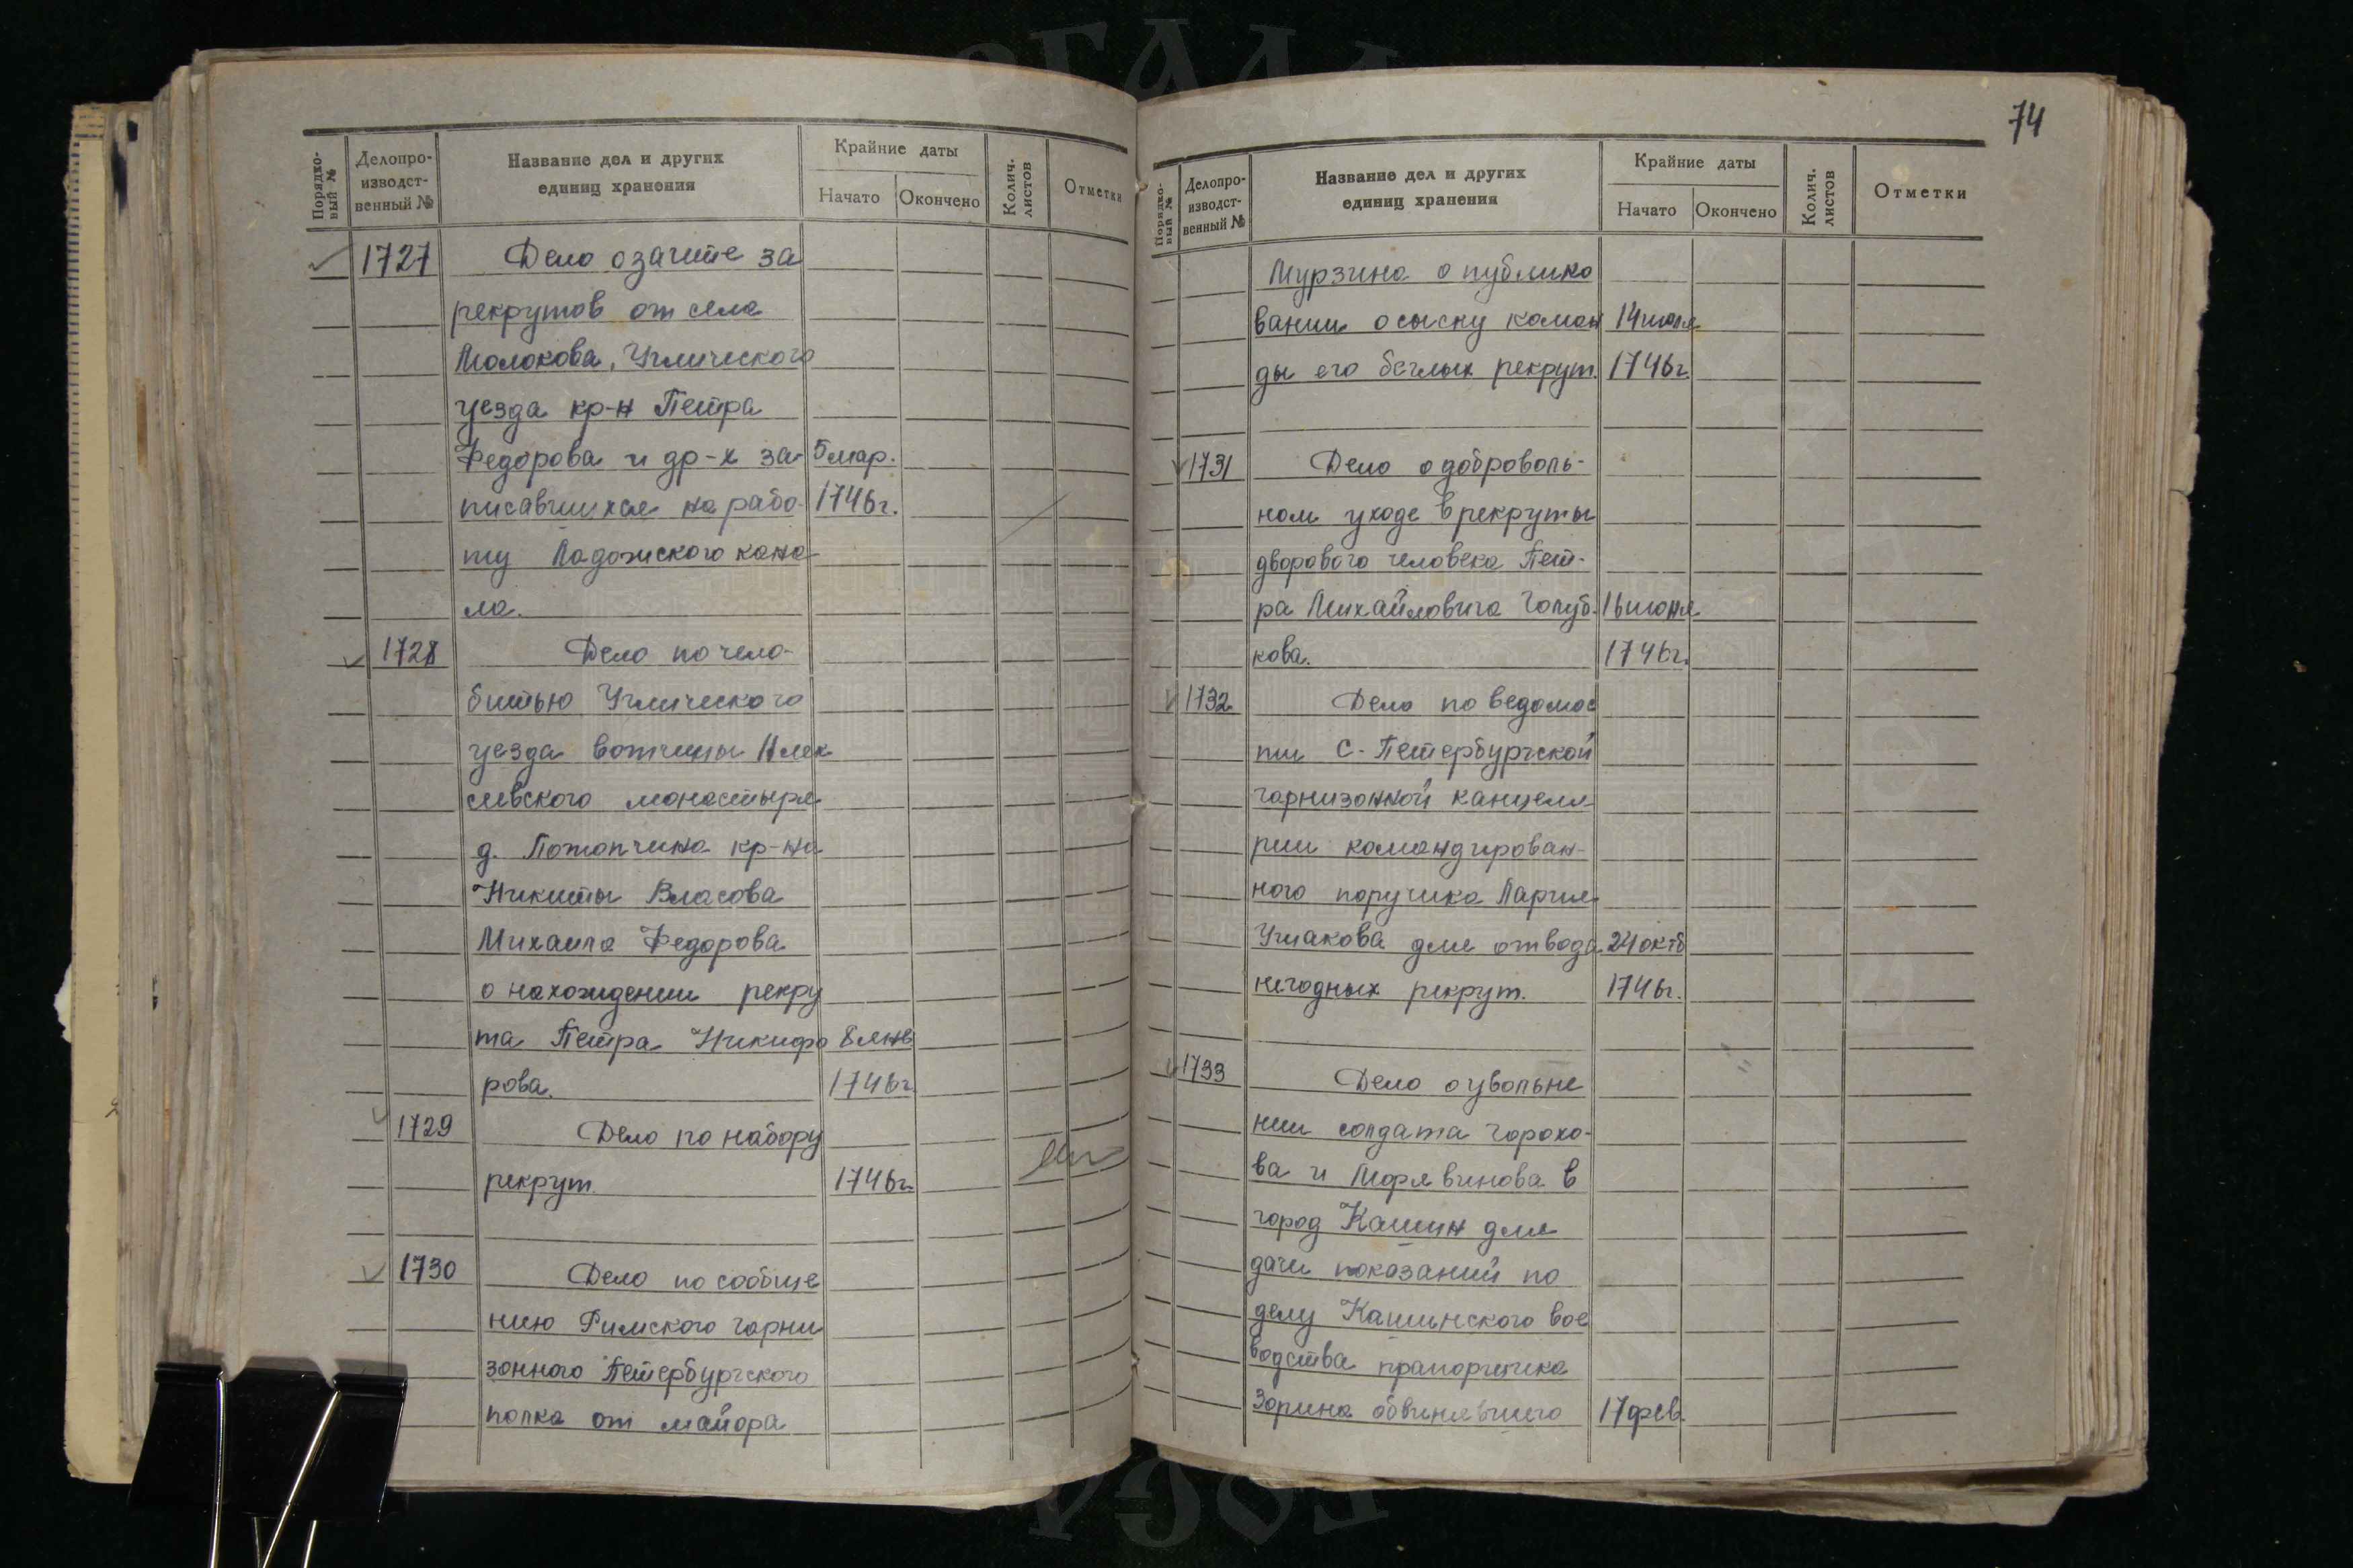 Порядко-
вый №
Делопро-
изводст-
венный №
Название дел и других
единиц хранения
Крайние даты
Начато
Окончено
Колич.
листов
Отметки
1727 Дело о зачите за
рекрутов от села
Молокова, Угличского
уезда кр-н Петра
Федорова и др-х за- 5 мар.
писавшихся на рабо- 1746г.
ту Ладожского кана-
ла.
1728 Дело по чело-
битью Угличского
уезда вотчины Алек
сеевского монастыря
д. Потопчина кр-на
Никиты Власова
Михаила Федорова
о нахождении рекру
та Петра Никифо 8 янв
рова. 1746г
1729 Дело по набору
рекрут. 1746г.
1730 Дело по сообще
нию Римского гарни
зонного Петербургского
полка от майора
74
Порядко-
вый №
Делопро-
изводст-
венный №
Название дел и других
единиц хранения
Крайние даты
Начато
Окончено
Колич.
листов
Отметки
Мурзина о публико
вании о сыску коман 14 июля
ды его беглых рекрут. 1746г.
1731 Дело о доброволь-
ном уходе в рекруты
дворового человека Пет-
ра Михайловича Голуб- 16 июня
кова. 1746г.
1732 Дело по ведомос
ти С-Петербургской
гарнизонной канцеля-
рии командирован-
ного поручика Лария
Ушакова для отвода 24 октб
негодных рекрут. 1746г.
1733 Дело о увольне
нии солдата Горохо-
ва и Морявинова в
город Кашин для
дачи показаний по
делу Кашинского вое
водства прапорщика
Зорина обвинявшего 17 фев.